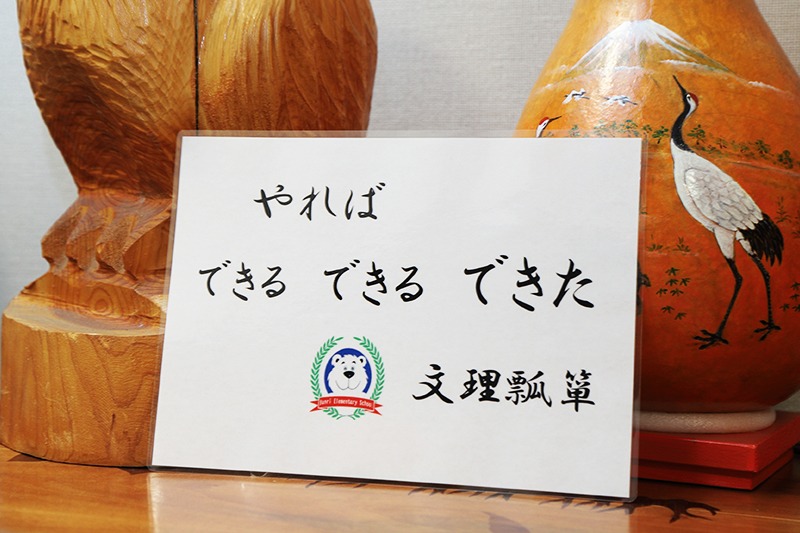 やれば
できる できる できた
Bunri Elementary School
文理瓢箪